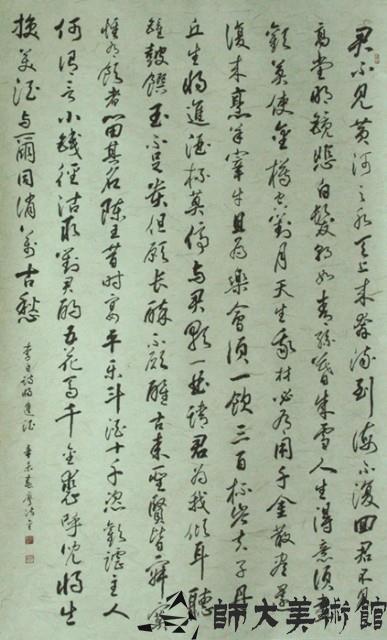 君不見黃河之水天上來奔流到海不復回君不見
高堂明鏡悲白髮朝如青絲暮成雪人生得意須盡
歡莫使金樽空對月天生我材必有用千金散盡還
復來烹羊宰牛且為樂會須一飲三百杯岑夫子丹
丘生將進酒杯莫停与君歌一曲請君為我傾耳聽
鐘鼓饌玉不足貴但願長醉不願醒古來聖賢皆寂寞
惟有飲者留其名陳王昔時宴平樂斗酒十千恣歡謔主人
何為言少錢徑沽取對君酌五花馬千金裘呼兒將出
換美酒与爾同消萬古愁
李白詩將進酒 辛未春
師大美術館